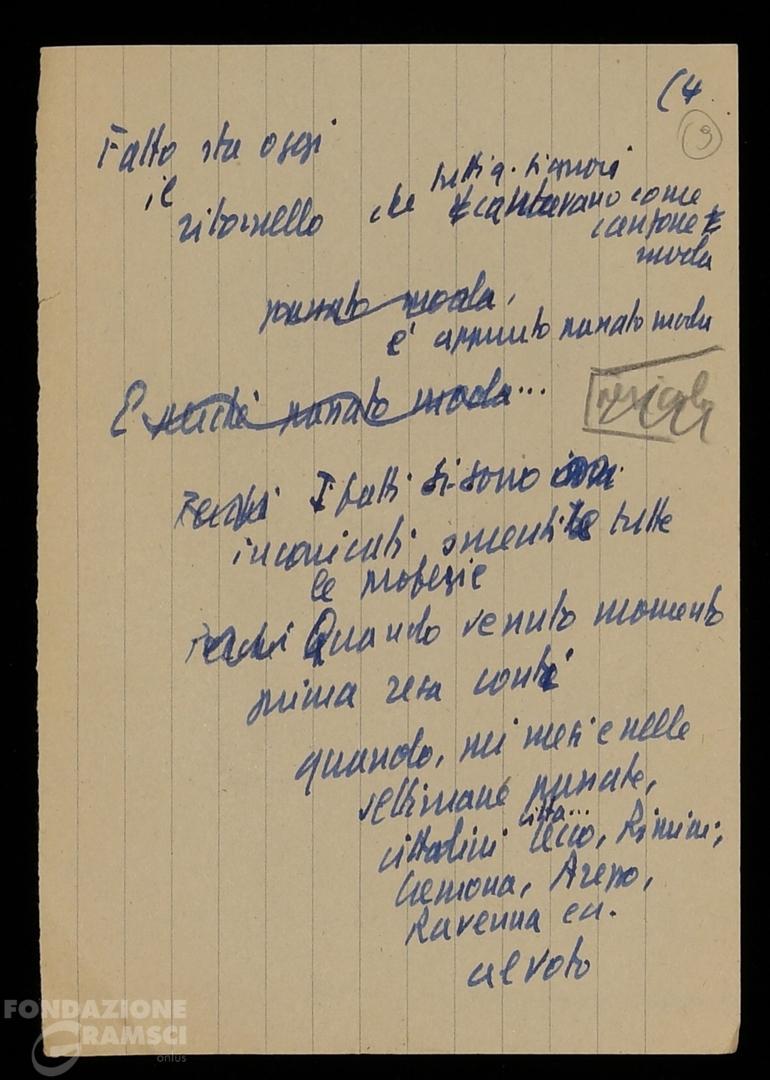 (4
(9)
Fatto sta oggi
il
ritornello che tutti q. signori
cantavano come
canzone
moda
passato moda,
è appunto passato moda
E perché passato moda...
I fatti si sono
incaricati smentire tutte
le profezie
Quando venuto momento
prima resa conti
quando, nei mesi e nelle
settimane passate,
città...
cittadini Lecco, Rimini,
Cremona, Arezzo,
Ravenna ecc.
al voto
FONDAZIONE
GRAMSCI
onlus